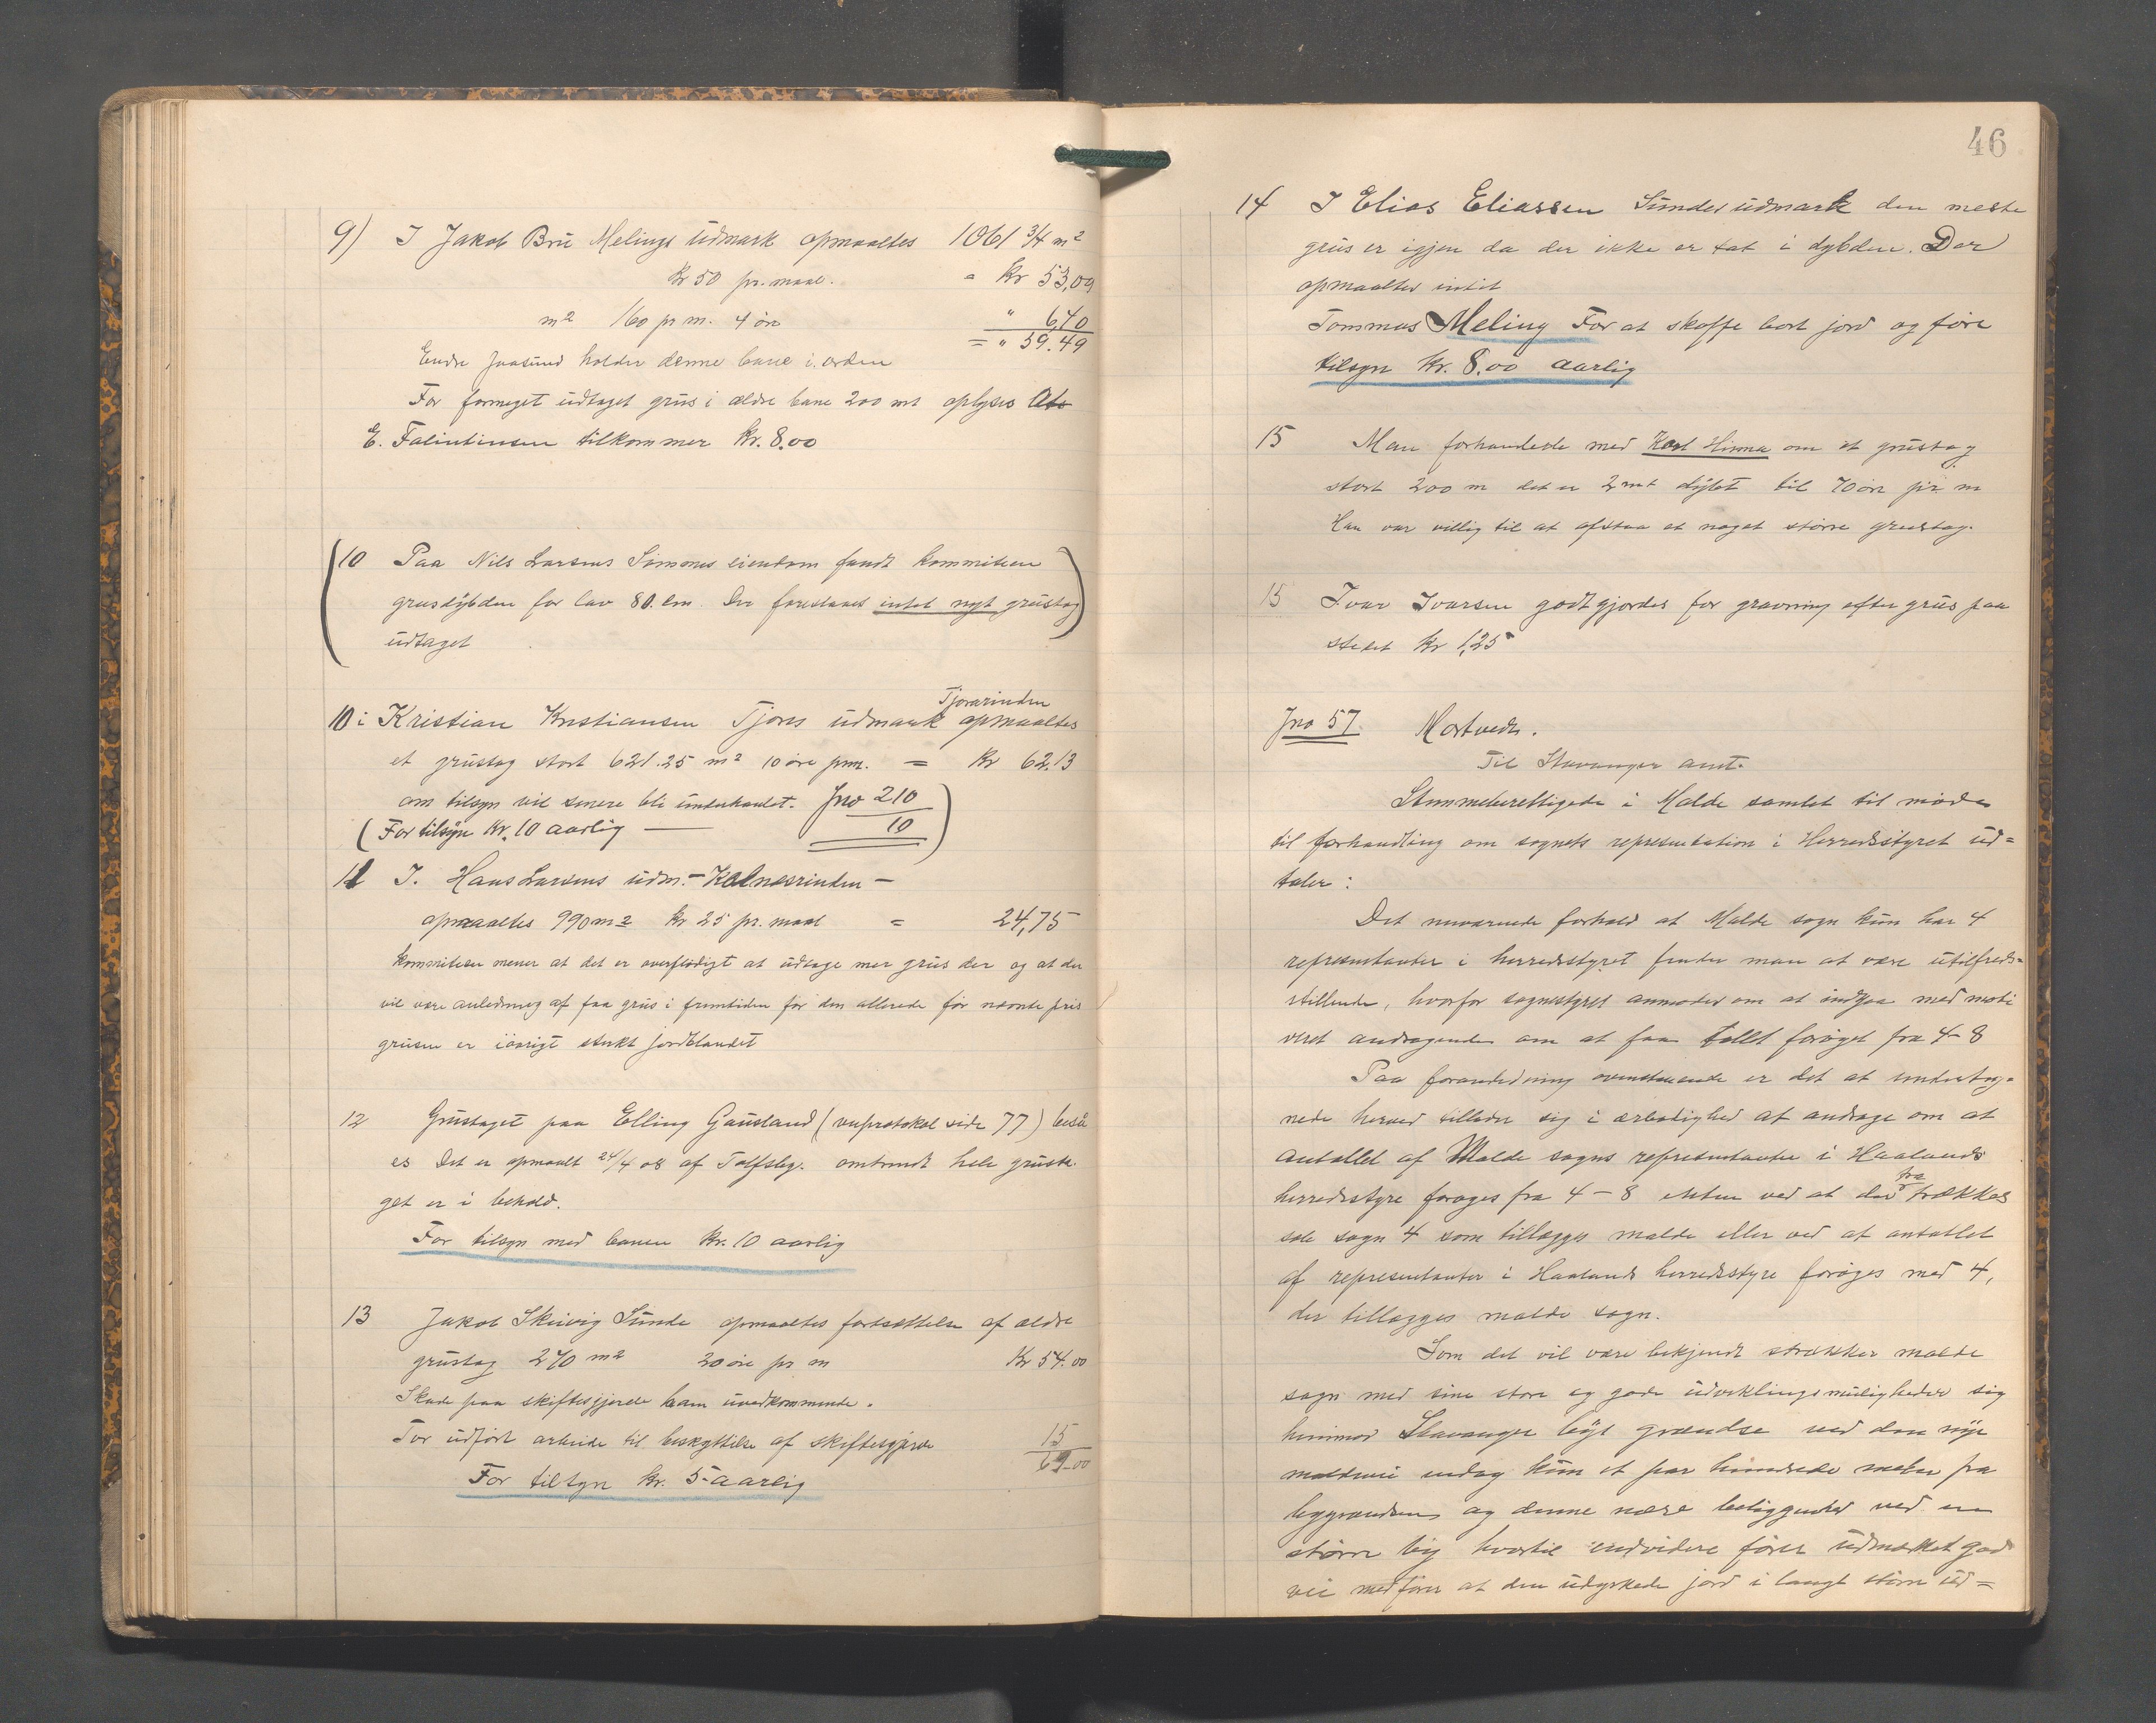 9) I Jakob Bru Melings udmark opmaaltes 1061 3/4 m²
Kr 50 pr. maal. = Kr 53,09
m² 160 pr m. 4 øre " 6,40
= " 59.49
Endre Jaasund holder denne bane i orden
For formeget udtaget grus i ældre bane 200 mt oplyses
E. Falintinsen tilkommer Kr. 8.00
10 Paa Nils Larsens Sømmes eiendom fandt kommiteen
grusdybden for lav 80. cm. Der foreslaaes intet nyt grustag
udtaget
Tjorarinden
10 i Kristian Kristiansen Tjores udmark opmaaltes
et grustag stort 621.25 m² 10 øre prm. = Kr 62.13
om tilsyn vil senere bli underhandlet. Jno 210
(For tilsyn Kr. 10 aarlig — 10)
11 I. Hans Larsens udm. - Kolnesrinden -
opmaaltes 990 m² Kr 25 pr. maal = 24,75
Kommiteen mener at det er overflødigt at udtage mer grus der og at der
vil være anledning af faa grus i fremtiden for den allerede før nævnte pris
grusen er iøvrigt sterkt jordblandet
12 Grustaget paa Elling Gausland ( veiprotokol side 77)
es Det er opmaalt 24/4 08 af omtrendt hele grusta-
get er i behold.
For tilsyn med banen Kr. 10 aarlig
13 Jakob Skeivig Sunde opmaaltes fortsættelse af ældre
grustag 270 m² 20 øre pr m Kr 54.00
Skade paa skiftesgjerde ham uvedkommende.
For udført arbeide til beskyttelse af skiftesgjærde 15
69.00
For tilsyn kr. 5- aarlig
46
14 I Elias Eliassen Sundes udmark den meste
grus er igjen da der ikke er tat i dybden. Der
opmaaltes intet
Tommas Meling For at skaffe bort jord og føre
tilsyn Kr. 8.00 aarlig
15 Man forhandlede med Karl Hinna om et grustag
stort 200 m det er 2 mt dybt til 70 øre pr m
Han var villig til at afstaa et noget større grustag.
15 Ivar Ivarsen godtgjordes for gravning efter grus paa
stedet Kr 1,25
Jno 57. Mortvedt.
Til Stavanger amt.
Stemmeberettigede i Malde samlet til møde
til forhandling om sognets representation i Herredsstyret ud=
taler:
Det nuværende forhold at Malde sogn kun har 4
representanter i herredsstyret finder man at være utilfreds=
stillende, hvorfor sognestyret anmodes om at indgaa med moti
veret andragende om at faa tallet forøget fra 4-8
Paa foranledning ovenstaaende er det at underteg=
nede herved tillader sig i ærbødighed at andrage om at
antallet af Malde sogns representanter i Haalands
herredsstyre forøges fra 4 - 8 enten ved at der fra trækkes
sole sogn 4 som tillægges malde eller ved at antallet
af representanter i Haalands herredsstyre forøges med 4,
der tillægges malde sogn.
Som det vil være bekjendt strækker malde
sogn med sine store og gode udviklingsmuligheder sig
henimod Stavanger bys grændse ved den nye
maldevei endog kun et par hundrede meter fra
bygrændsen og denne nære beliggenhed ved en
større by hvortil endvidere fører udmærket god
vei medfører at den udyrkede jord i langt større ud=